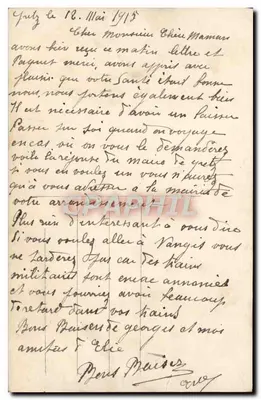 Gretz le 12. Mai 1915
Cher Monsieur Chère Maman
avons bien reçu ce matin lettre et
Paquet merci, avons appris avec
plaisir que votre Santé était bonne
nous, nous portons également bien
Il est nécessaire d'avoir un Laisser
Passer sur soi quand on voyage
en cas où on vous le demanderez
voilà la réponse du maire de gretz
si vous en voulez un vous n'aurez
qu'à vous adresser à la mairie de
votre arrondissement
Plus rien d'interessant à vous dire
Si vous voulez aller à Nangis vous
ne tarderez pas car des trains
militaires sont encore annoncés
et vous pouvriez avoir beaucoup
de retard dans vos trains
Bons Baisers de georges et moi
amitiés d'Elie
Bons Baisers
PHIL